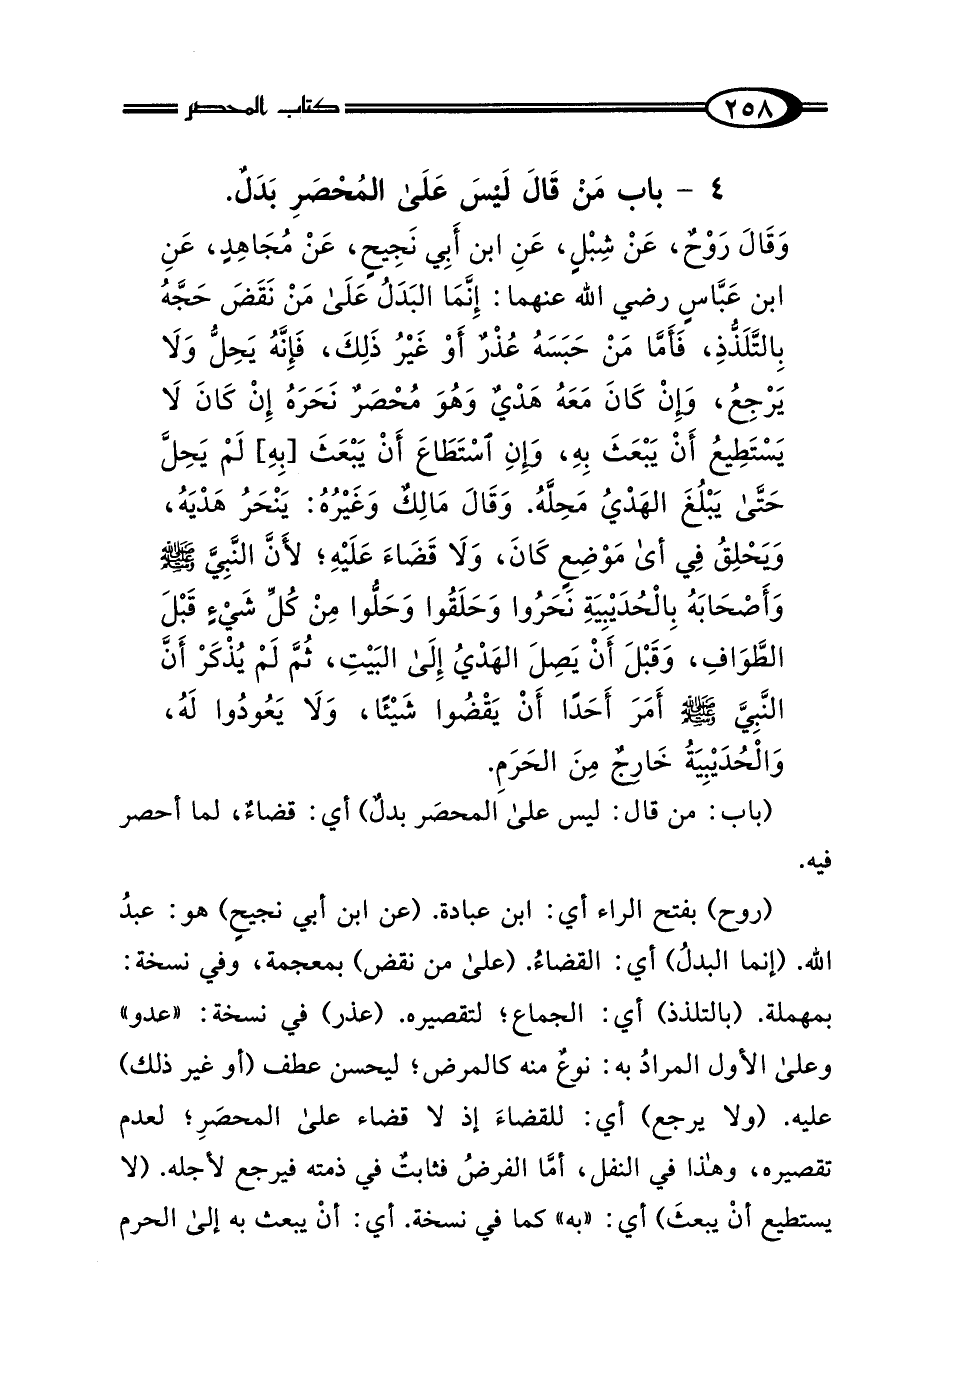 ٢٥٨ كتاب المحصر
٤ - باب مَنْ قَالَ لَيْسَ عَلَىٰ المُحْصَرِ بَدَلٌ.
وَقَالَ رَوْحٌ، عَنْ شِبْلٍ، عَنِ ابن أَبِي نَجِيحٍ، عَنْ مُجَاهِدٍ، عَنِ
ابن عَبَّاسٍ رضي الله عنهما: إِنَّمَا البَدَلُ عَلَىٰ مَنْ نَقَضَ حَجَّهُ
بِالتَّلَذُّذِ، فَأَمَّا مَنْ حَبَسَهُ عُذْرٌ أَوْ غَيْرُ ذَلِكَ، فَإِنَّهُ يَحِلُّ وَلَا
يَرْجِعُ، وَإِنْ كَانَ مَعَهُ هَدْيٌ وَهُوَ مُحْصَرٌ نَحَرَهُ إِنْ كَانَ لَا
يَسْتَطِيعُ أَنْ يَبْعَثَ بِهِ، وَإِنِ ٱسْتَطَاعَ أَنْ يَبْعَثَ [بِهِ] لَمْ يَحِلَّ
حَتَّىٰ يَبْلُغَ الهَدْيُ مَحِلَّهُ. وَقَالَ مَالِكٌ وَغَيْرُهُ: يَنْحَرُ هَدْيَهُ،
وَيَحْلِقُ فِي أىٰ مَوْضِعٍ كَانَ، وَلَا قَضَاءَ عَلَيْهِ؛ لأَنَّ النَّبِيَّ ﷺ
وَأَصْحَابَهُ بِالْحُدَيْبِيَةِ نَحَرُوا وَحَلَقُوا وَحَلُّوا مِنْ كُلِّ شَيْءٍ قَبْلَ
الطَّوَافِ، وَقَبْلَ أَنْ يَصِلَ الهَدْيُ إِلَىٰ البَيْتِ، ثُمَّ لَمْ يُذْكَرْ أَنَّ
النَّبِيَّ ﷺ أَمَرَ أَحَدًا أَنْ يَقْضُوا شَيْئًا، وَلَا يَعُودُوا لَهُ،
وَالْحُدَيْبِيَةُ خَارِجٌ مِنَ الحَرَمِ.
(باب: من قال: ليس علىٰ المحصَر بدلٌ) أي: قضاءٌ، لما أحصر
فيه.
(روح) بفتح الراء أي: ابن عبادة. (عن ابن أبي نجيحٍ) هو: عبدُ
الله. (إنما البدلُ) أي: القضاءُ. (علىٰ من نقض) بمعجمة، وفي نسخة:
بمهملة. (بالتلذذ) أي: الجماع؛ لتقصيره. (عذر) في نسخة: «عدو»
وعلىٰ الأول المرادُ به: نوعٌ منه كالمرض؛ ليحسن عطف (أو غير ذلك)
عليه. (ولا يرجع) أي: للقضاءَ إذ لا قضاء علىٰ المحصَرِ؛ لعدم
تقصيره، وهذا في النفل، أمَّا الفرضُ فثابتٌ في ذمته فيرجع لأجله. (لا
يستطيع أنْ يبعثَ) أي: «به» كما في نسخة. أي: أنْ يبعث به إلىٰ الحرم